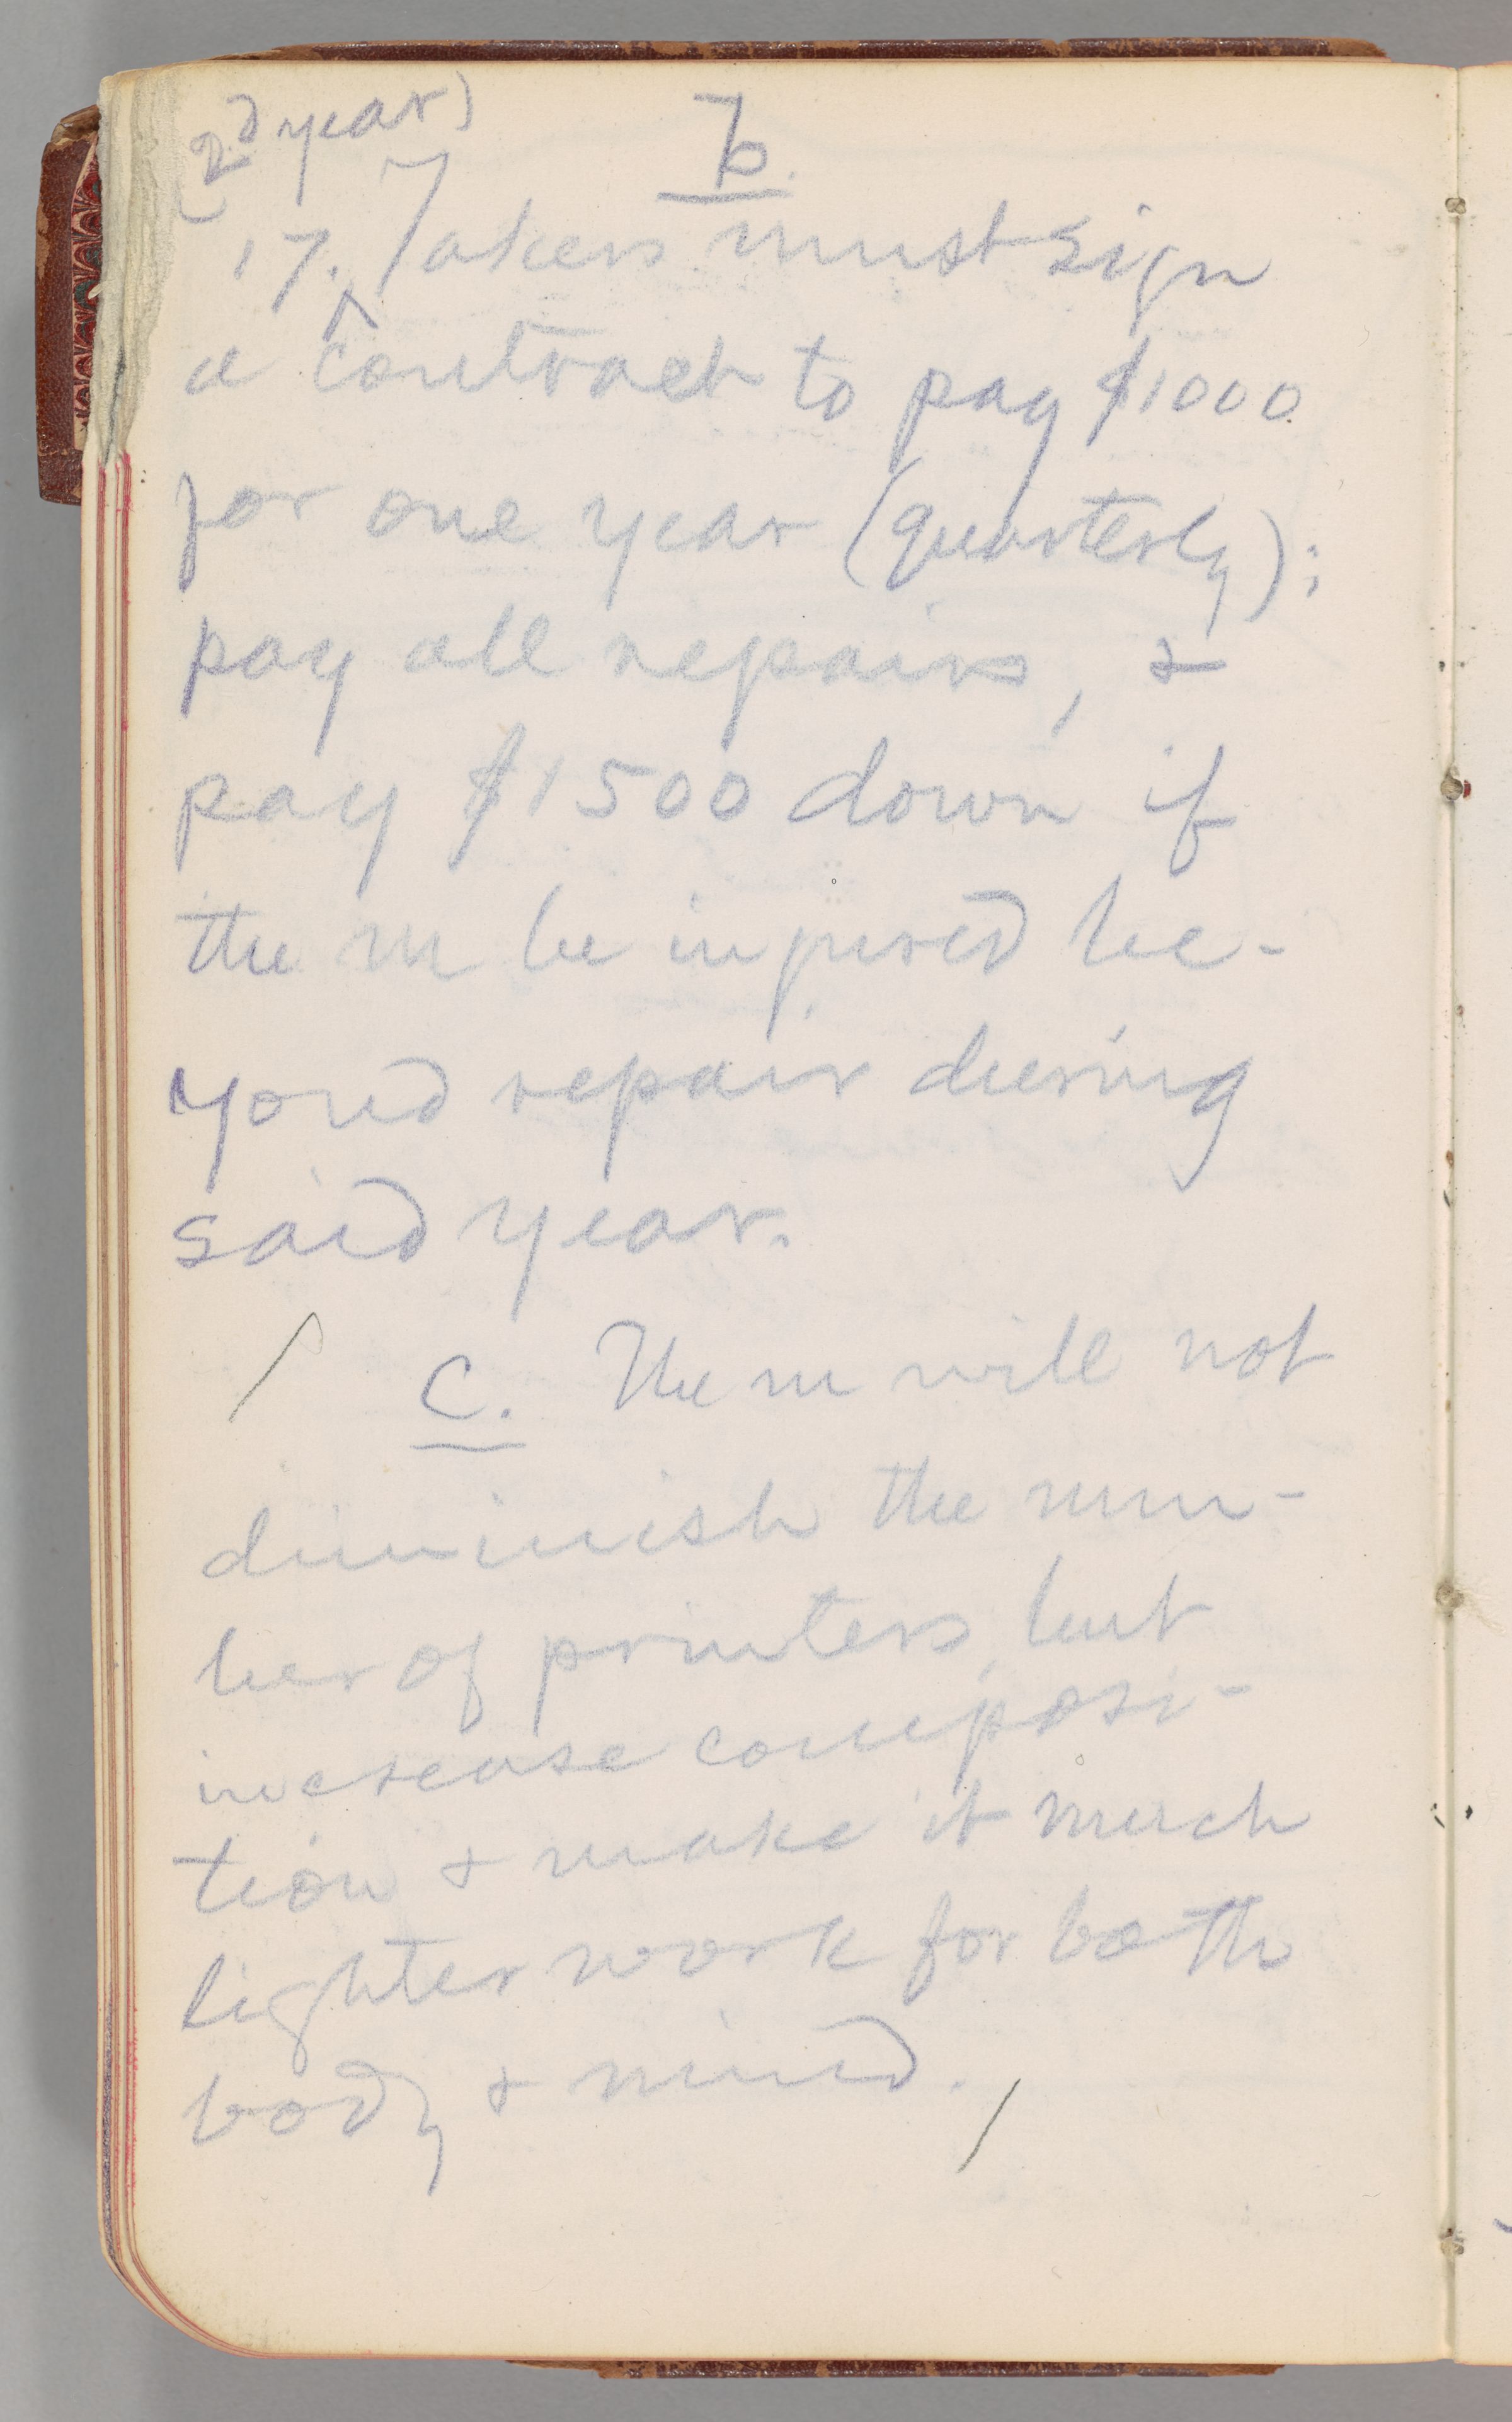 (2d year)
b.
17. Takers must sign
a ^ contract to pay $1000
for one year (quarterly);
pay all repairs, &
pay $1500 down if
the m be injured be-
yond repair during
said year.
/ c. The m will not
diminish the num-
ber of printers, but
increase composi-
tion & make it much
lighter work for both
body & mind. /